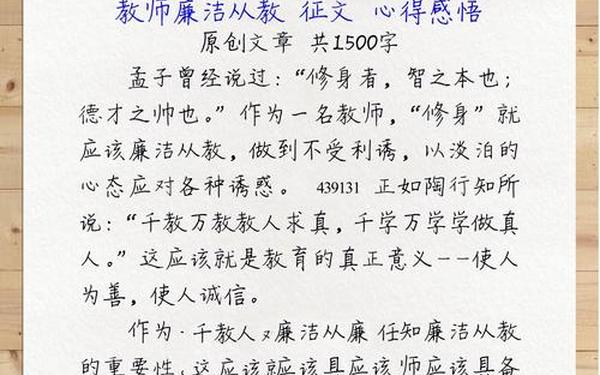 教师廉洁从教 征文 心得感悟
原创文章 共1500字
孟子曾经说过：“修身者，智之本也；
德才之帅也。”作为一名教师，“修身”就
应该廉洁从教，做到不受利诱，以淡泊的
心态应对各种诱惑。 439131 正如陶行知所
说：“千教万教教人求真，千学万学学做真
人。”这应该就是教育的真正意义--使人
为善，使人诚信。
作为·千教人 廉洁从廉 任知廉洁从教
的重要性，这应该就应该具应该师应该具备